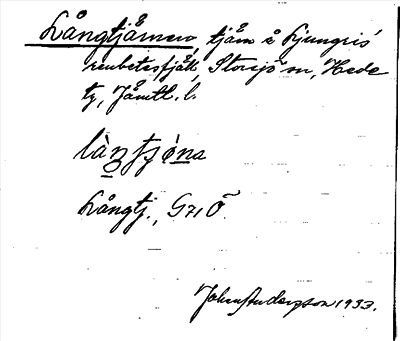 Långtjärnen, tjärn å Ljungris
renbetesfjäll, Storsjö sn, Hede
tg, Jämtl. l.
Långtj., G71 Ö
John Andersson 1933.